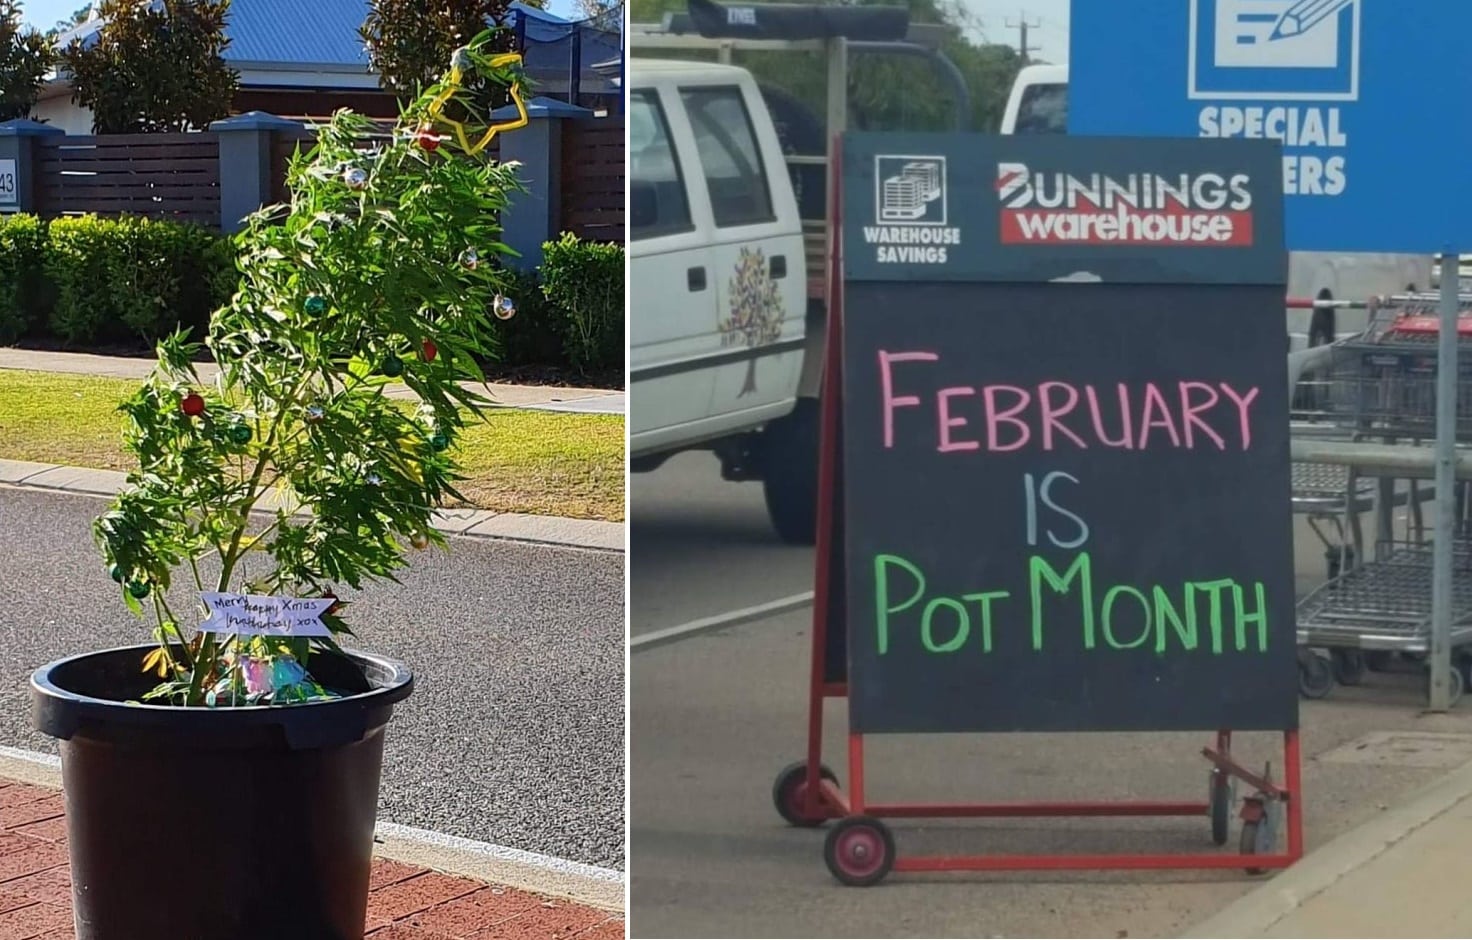 43
Merry Happy Xmas
xox
KINGS
SPECIAL
ERS
WAREHOUSE
SAVINGS
BUNNINGS
warehouse
FEBRUARY
IS
POT MONTH